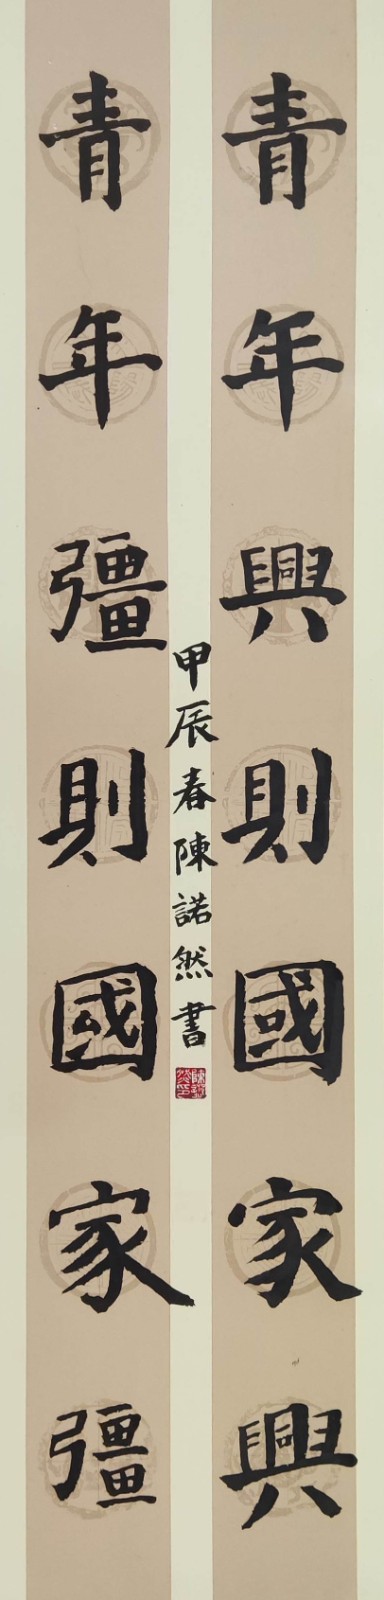 青年興則國家興
青年彊則國家彊
甲辰春陳諾然書